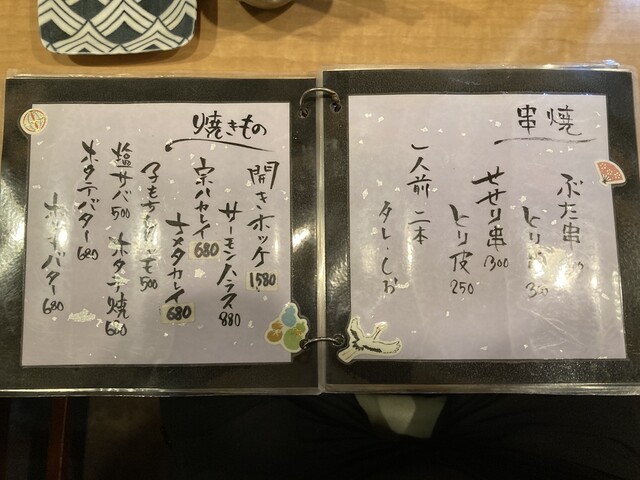 串焼
ぶた串
とり串
せせり串 300
とり皮 250
一人前 二本
タレ・しお
焼きもの
開きホッケ 1580
サーモンハラス 880
宗八カレイ 680
ナメタカレイ 680
子もち 500
塩サバ 500
ホタテ焼 680
ホタテバター 680
バター 680